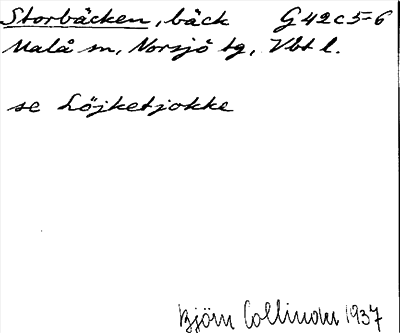 Storbäcken, bäck G 42 c 5-6
Malå sn, Norsjö tg, Vbt l.
se Löjketjokke
Björn Collinder 1937